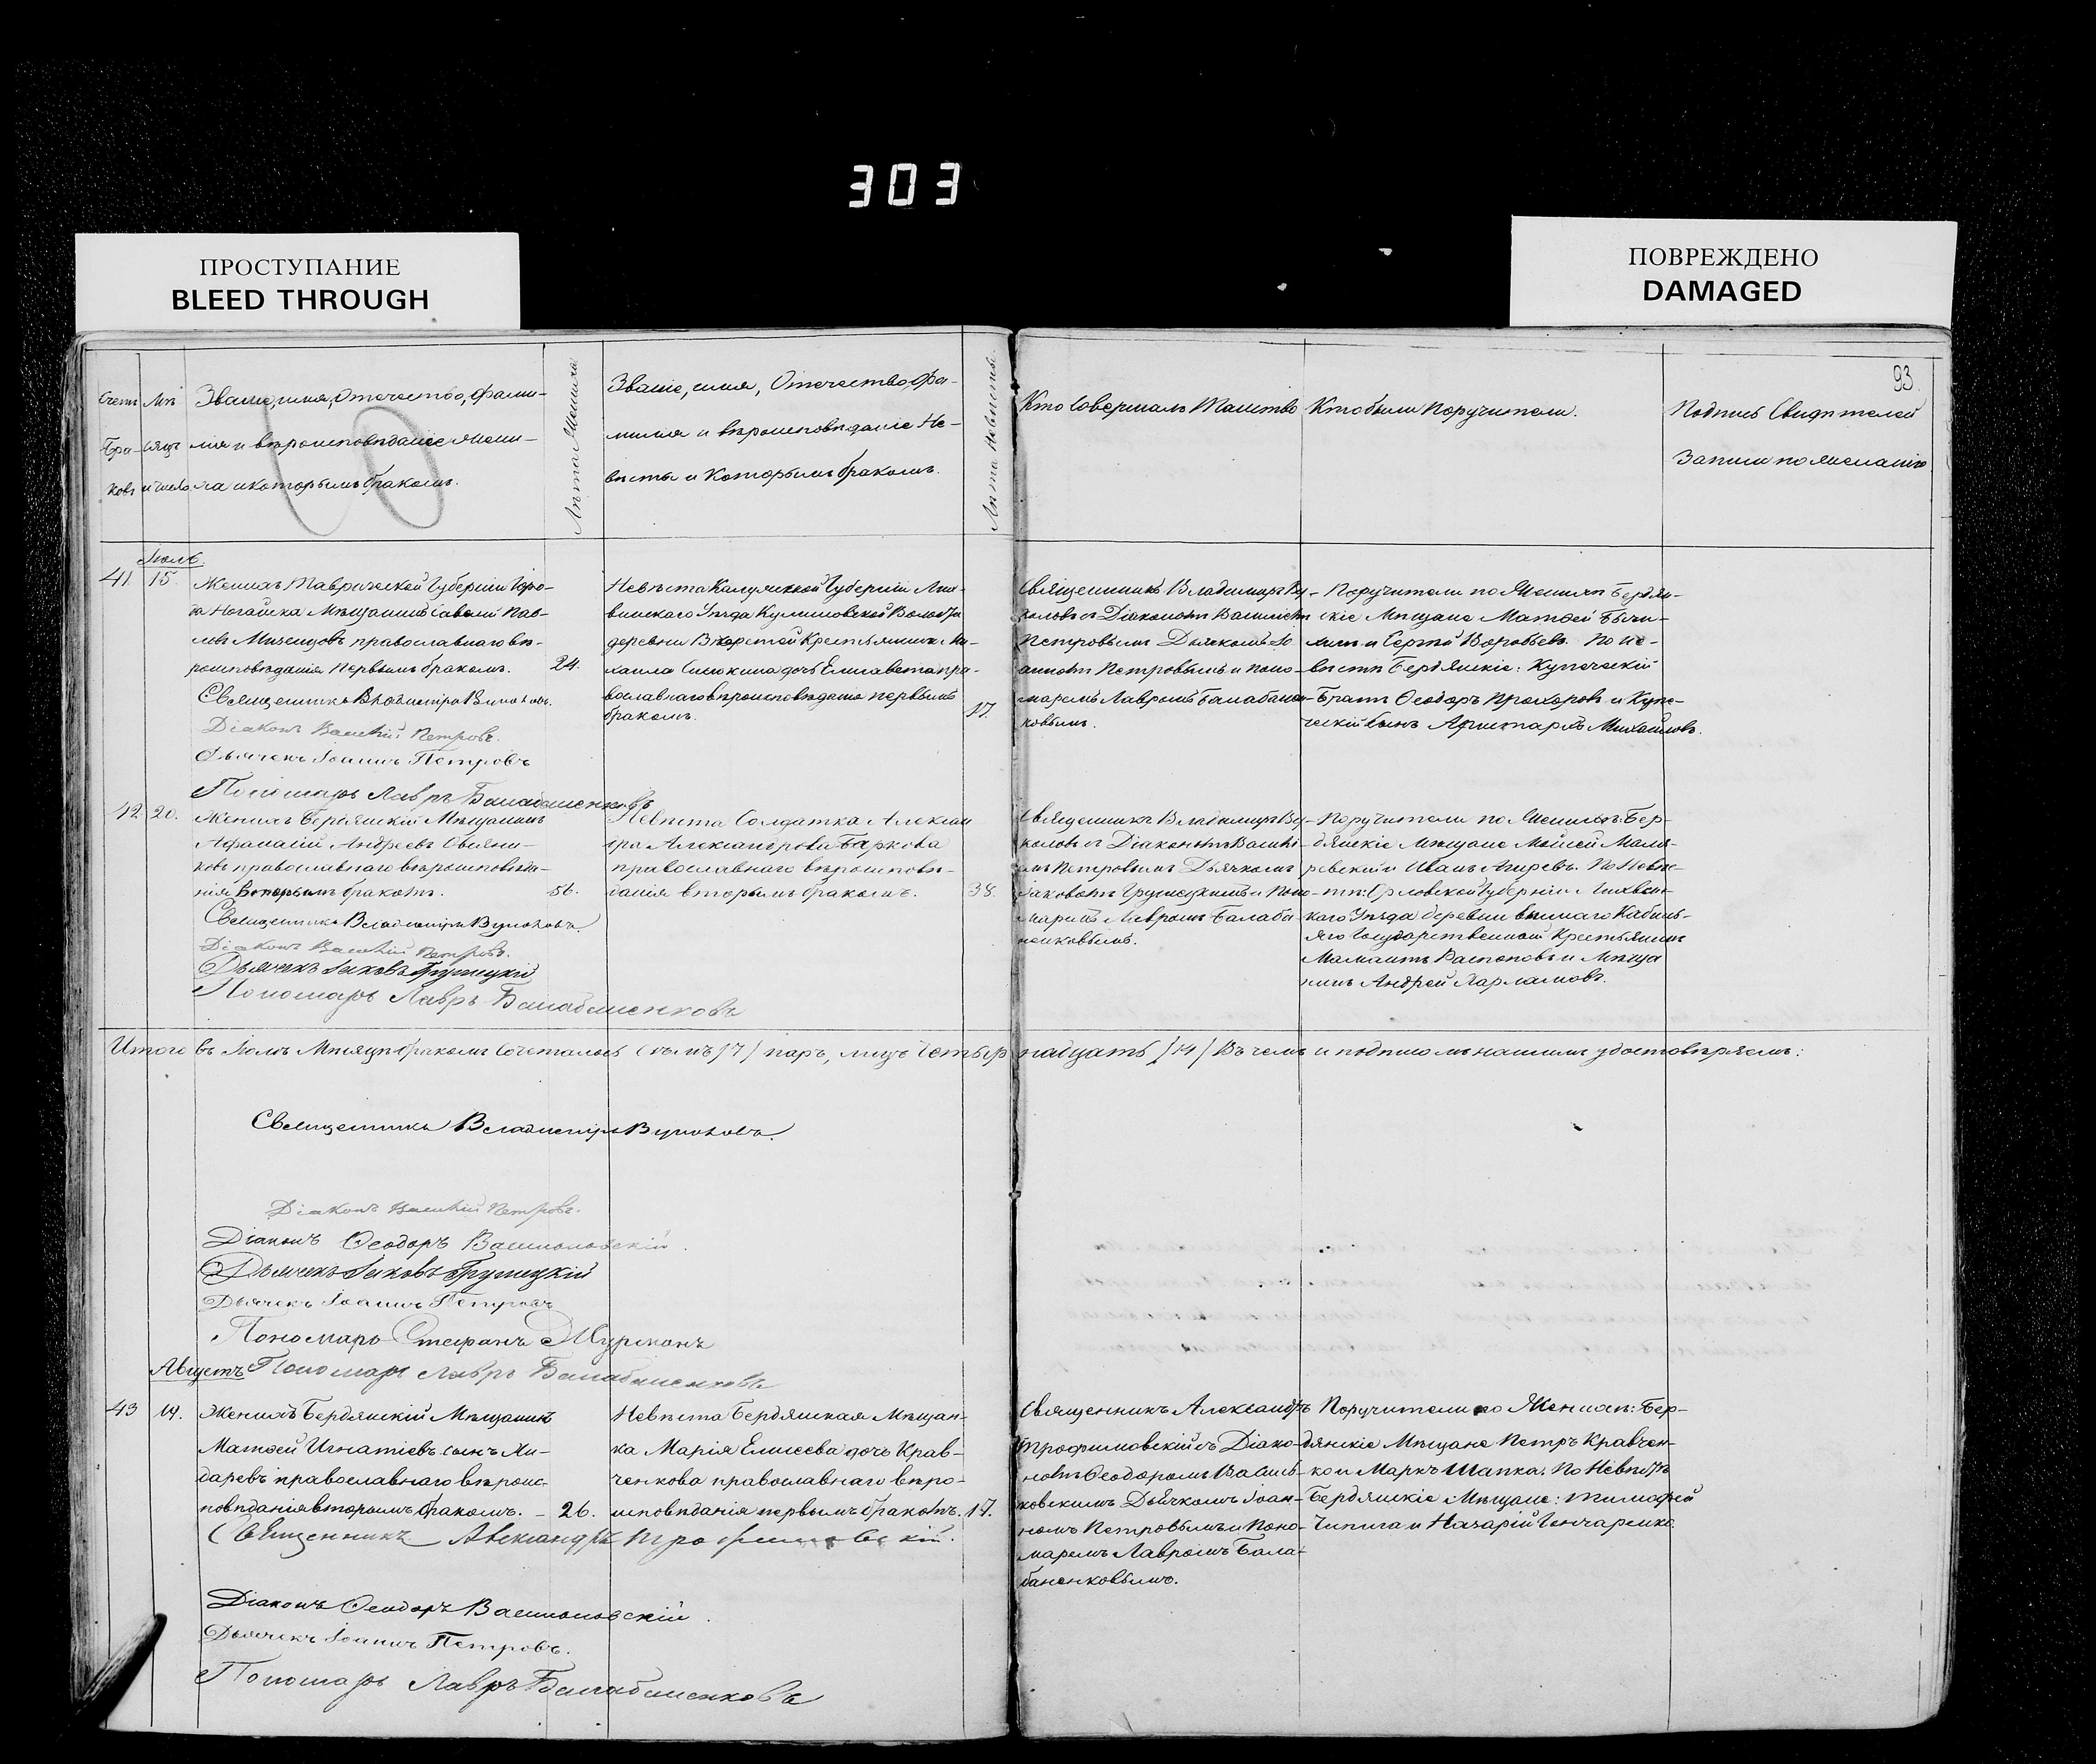 303
ПРОСТУПАНИЕ
BLEED THROUGH
ПОВРЕЖДЕНО
DAMAGED
93.
Счетъ
Бра-
ковъ
Мѣ
сяцъ
и число
Званіе, имя, Отчество, Фами-
лія и вѣроисповѣданіе Жени-
ха и которымъ бракомъ.
Лѣта Жениха
Званіе, имя, Отчество, Фа-
милія и вѣроисповѣданіе Не-
вѣсты и Которымъ бракомъ.
Лѣта Невѣсты
Кто Совершалъ Таинство
Кто были Поручители.
Подпись Свидѣтелей
Записи по желанію
Іюль.
41. 15.
Женихъ Таврической Губерніи Горо-
да Ногайска Мѣщанинъ Савелій Пав-
левъ православнаго вѣ-
роисповѣданія первымъ бракомъ. 24.
Священникъ Владиміръ Вуколовъ.
Діаконъ Василій Петровъ.
Дьячекъ Іоаннъ Петровъ
Пономарь Лавръ Балабаненковъ
Невѣста Калужской Губерніи Лих-
винскаго Уѣзда Волости
деревни Крестьянина Ми-
хаила дочь Елисавета пра-
вославнаго вѣроисповѣданія первымъ
бракомъ. 17.
Священникъ Владиміръ Ву-
коловъ съ Діакономъ Василіемъ
Петровымъ Дьячкомъ Іо-
анномъ Петровымъ и поно-
маремъ Лавромъ Балабанен-
ковымъ.
Поручители по Женихѣ Бердян-
скіе Мѣщане Матѳей
и Сергѣй Воробьевъ. По не-
вѣстѣ Бердянскіе: Купеческій
Братъ Ѳеодоръ Прохоровъ и Купе-
ческій сынъ Аристархъ Михайловъ.
42. 20.
Женихъ Бердянскій Мѣщанинъ
Афанасій Андреевъ Овсяни-
ковъ православнаго вѣроисповѣда-
нія Вторымъ бракомъ. 56.
Священникъ Владиміръ Вуколовъ.
Діаконъ Василій Петровъ.
Дьячекъ Іаковъ Грушецкій
Пономарь Лавръ Балабаненковъ
Невѣста Солдатка Алексан
дра Александрова Баркова
православнаго вѣроисповѣ-
данія вторымъ бракомъ. 38.
Священникъ Владиміръ Ву-
коловъ съ Діакономъ Василі-
емъ Петровымъ Дьячкомъ
Іаковомъ Грушецкимъ и Поно-
маремъ Лавромъ Балаба
ненковымъ.
Поручители по Женихѣ: Бер-
дянскіе Мѣщане Моисей Маля-
ревскій и Иванъ По Невѣс-
тѣ: Орловской Губерніи
каго Уѣзда деревни
Государственной Крестьянинъ
и Мѣща
нинъ Андрей Харламовъ.
Итого въ Іюлѣ Мѣсяцѣ бракомъ Сочеталось Семь /7/ паръ, лицъ Четыр надцать /14/ Въ чемъ и подписомъ нашимъ удостовѣряемъ:
Священникъ Владиміръ Вуколовъ.
Діаконъ Василій Петровъ.
Діаконъ Ѳеодоръ Васильковскій.
Дьячекъ Іаковъ Грушецкій
Дьячекъ Іоаннъ Петровъ
Пономарь Стефанъ
Пономарь Лавръ Балабаненковъ
Августъ
43 14.
Женихъ Бердянскій Мѣщанинъ
Матѳей Игнатіевъ сынъ Жи-
даревъ православнаго вѣроис-
повѣданія вторымъ бракомъ. - 26.
Священникъ Александръ Трофимовскій.
Діаконъ Ѳеодоръ Васильковскій.
Дьячекъ Іоаннъ Петровъ.
Пономарь Лавръ Балабаненковъ
Невѣста Бердянская Мѣщан-
ка Марія Елисеева дочь Крав-
ченкова православнаго вѣро-
исповѣданія первымъ бракомъ. 17.
Священникъ Александръ
Трофимовскій съ Діако-
номъ Ѳеодоромъ Василь-
ковскимъ Дьячкомъ Іоан-
номъ Петровымъ и Поно-
маремъ Лавромъ Бала-
баненковымъ.
Поручители по Женихѣ: Бер-
дянскіе Мѣщане Петръ Кравчен-
ко и Маркъ Шапка. По Невѣстѣ
Бердянскіе Мѣщане: Тимофей
Чипига и Назарій Гончаренко.